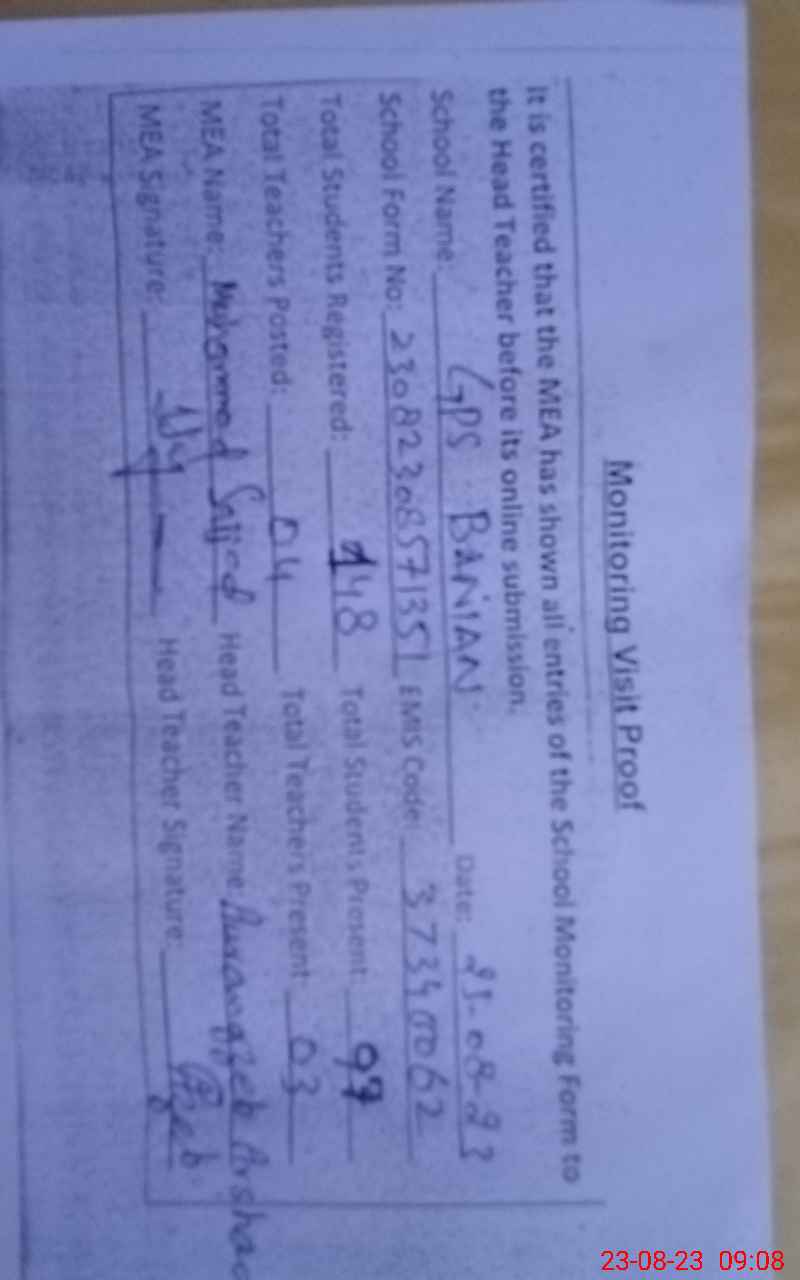 Monitoring Visit Proof
It is certified that the MEA has shown all entries of the School Monitoring Form to
the Head Teacher before its online submission.
School Name: GPS BANIAN Date: 23-08-23
School Form No: 23082308571351 EMIS Code: 37340062
Total Students Registered: 148 Total Students Present: 97
Total Teachers Posted: 04 Total Teachers Present: 03
MEA Name: Muhammad Sajjad Head Teacher Name: Aurangzeb Arshad
MEA Signature: Head Teacher Signature:
23-08-23 09:08